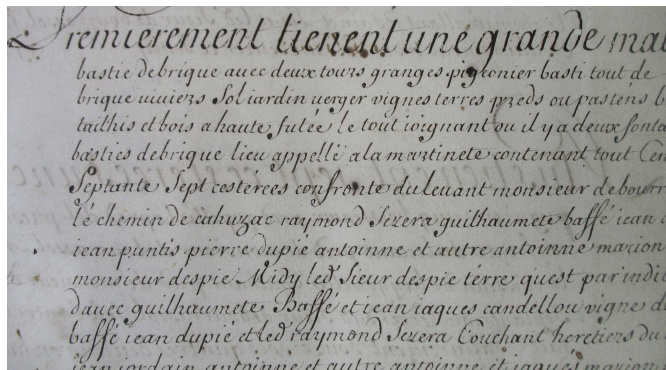 Premierement tienent une grande mai
bastie debrique avec deux tours granges pigeonier basti tout de
brique viviers Sol jardin verger vignes terres preds ou pastens b
taithis et bois a haute futée le tout joignant ou il y a deux fonta
basties debrique lieu appellé a la martinete contenant tout Cen
Septante Sept cesterées confronte du levant monsieur debourn
lé chemin de cahuzac raymond Sezera guilhaumete baffé iean
iean puntis pierre dupié antoinne et autre antoinne marion
monsieur despie Midy led Sieur despie térre quest par indic
davec guilhaumete Baffé et iean iaques candellou vigne d
baffé iean dupié et led raymond Sezera Couchant heretiers du
iean jordain antoinne et autre antoinne et iaques marion